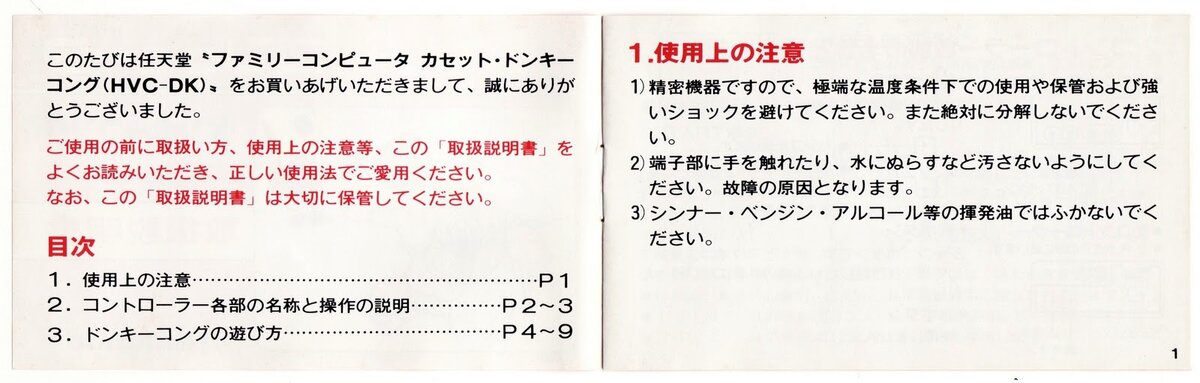 このたびは任天堂〝ファミリーコンピュータ カセット・ドンキー
コング(HVC-DK)〟をお買いあげいただきまして、誠にありが
とうございました。
ご使用の前に取扱い方、使用上の注意等、この「取扱説明書」を
よくお読みいただき、正しい使用法でご愛用ください。
なお、この「取扱説明書」は大切に保管してください。
目次
1．使用上の注意……………………………………P1
2．コントローラー各部の名称と操作の説明…………P2～3
3．ドンキーコングの遊び方…………………………P4～9
1.使用上の注意
1)精密機器ですので、極端な温度条件下での使用や保管および強
いショックを避けてください。また絶対に分解しないでくださ
い。
2)端子部に手を触れたり、水にぬらすなど汚さないようにしてく
ださい。故障の原因となります。
3)シンナー・ベンジン・アルコール等の揮発油ではふかないでく
ださい。
1